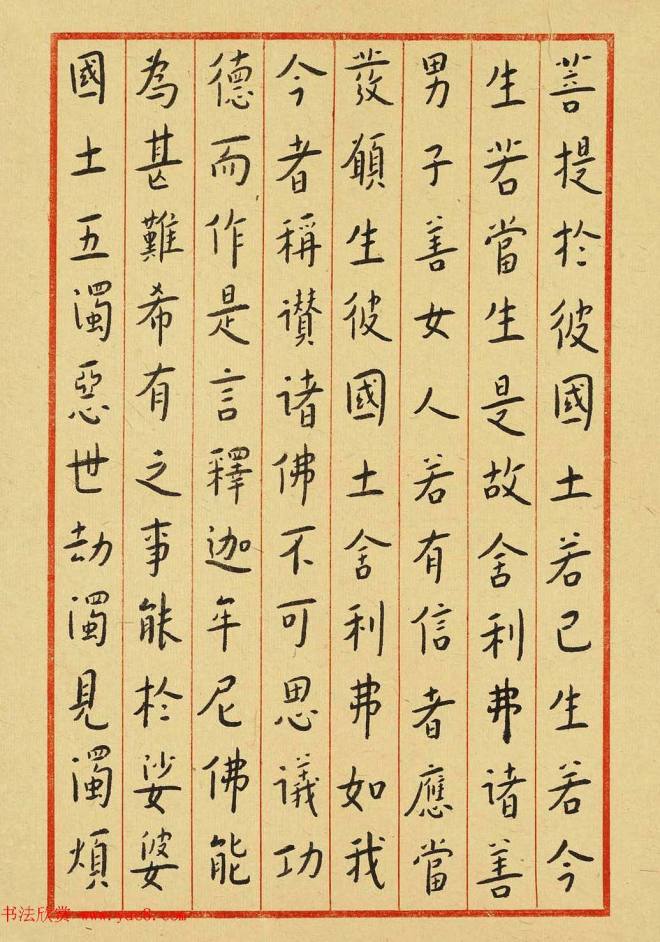 菩提於彼國土若已生若今
生若當生是故舍利弗諸善
男子善女人若有信者應當
發願生彼國土舍利弗如我
今者稱讚諸佛不可思議功
德而作是言釋迦牟尼佛能
為甚難希有之事能於娑婆
國土五濁惡世劫濁見濁煩
书法欣赏 www.yac8.com